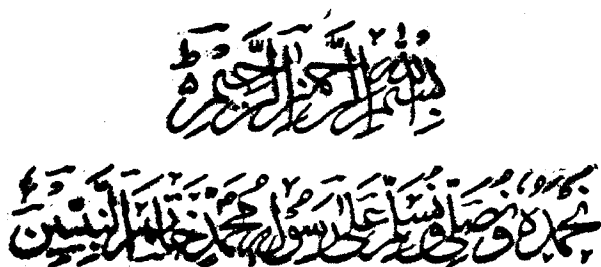 بسم الله الرحمن الرحيم ط
نحمده و نصلی و نسلم علی رسوله محمد خاتم النبیین